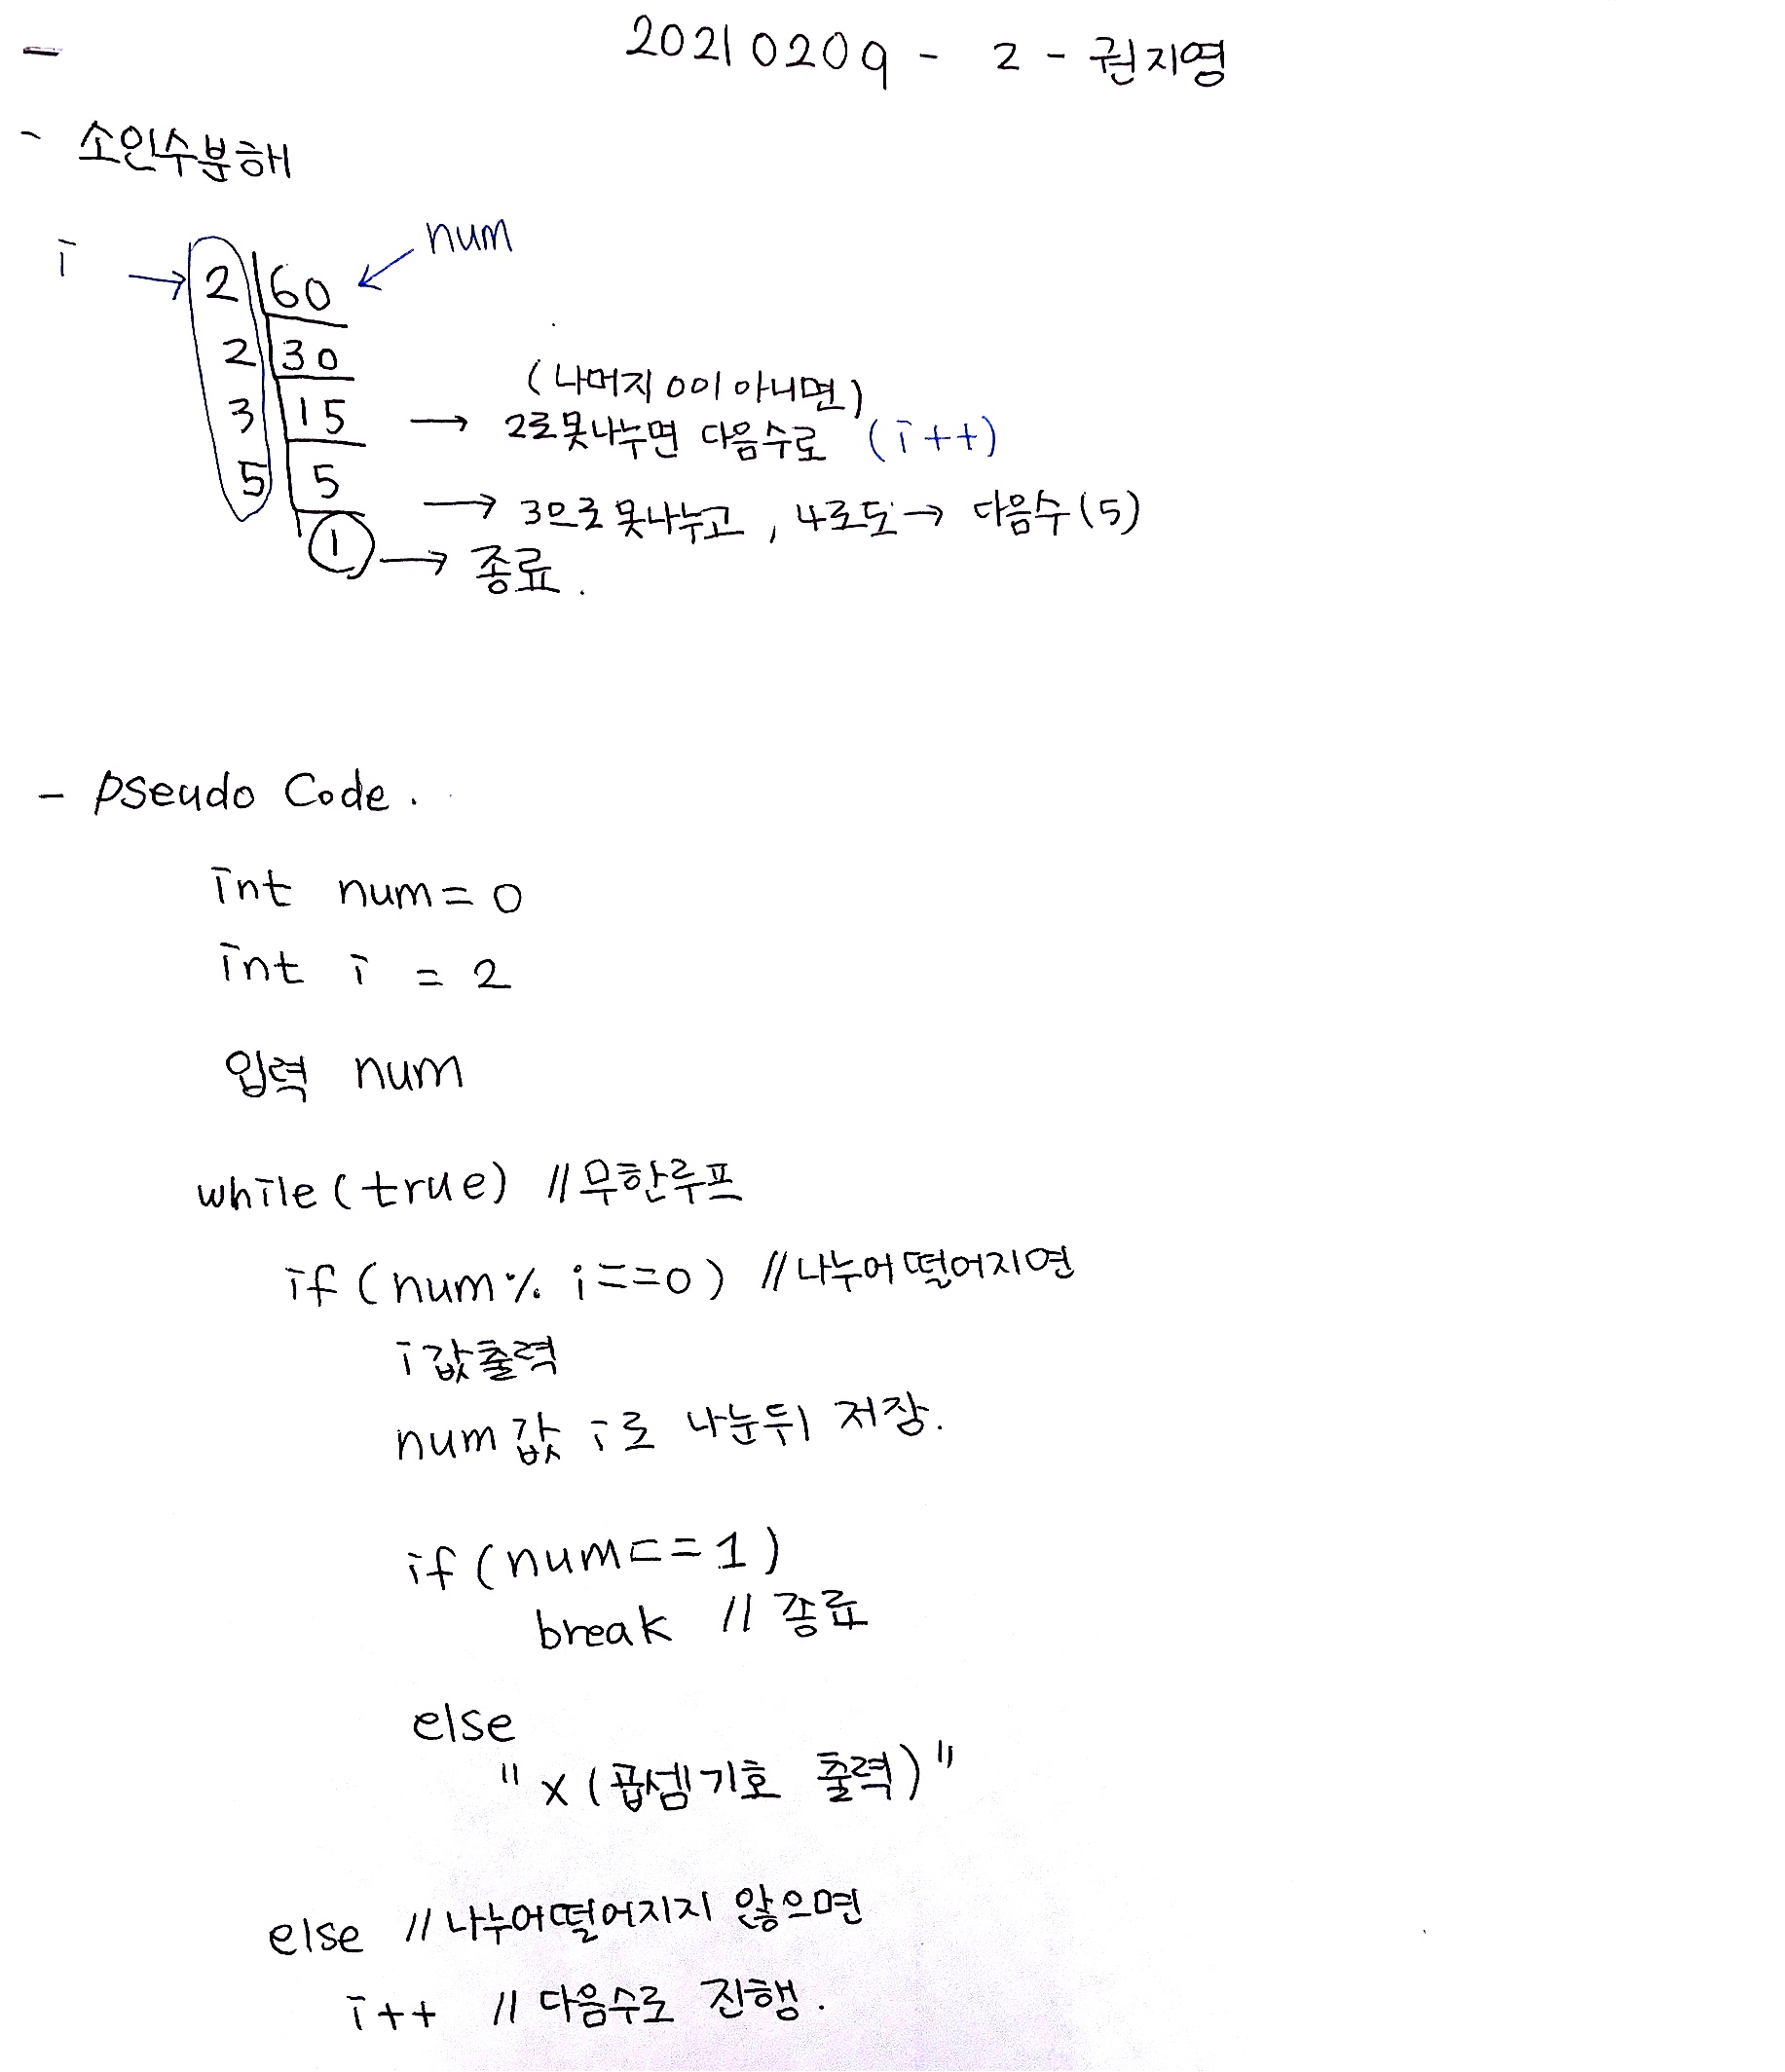 20210209 - 2 - 권지영
- 소인수분해
i → 2 60 ← num
2 30
(나머지 0이 아니면)
3 15 → 2로 못나누면 다음수로 (i++)
5 5 → 3으로 못나누고, 4로도 → 다음수(5)
1 → 종료.
- pseudo Code.
int num = 0
int i = 2
입력 num
while(true) //무한루프
if(num % i==0) //나누어떨어지면
i값출력
num값 i로 나눈뒤 저장.
if(num==1)
break // 종료
else
"x(곱셈기호 출력)"
else //나누어떨어지지 않으면
i++ // 다음수로 진행.